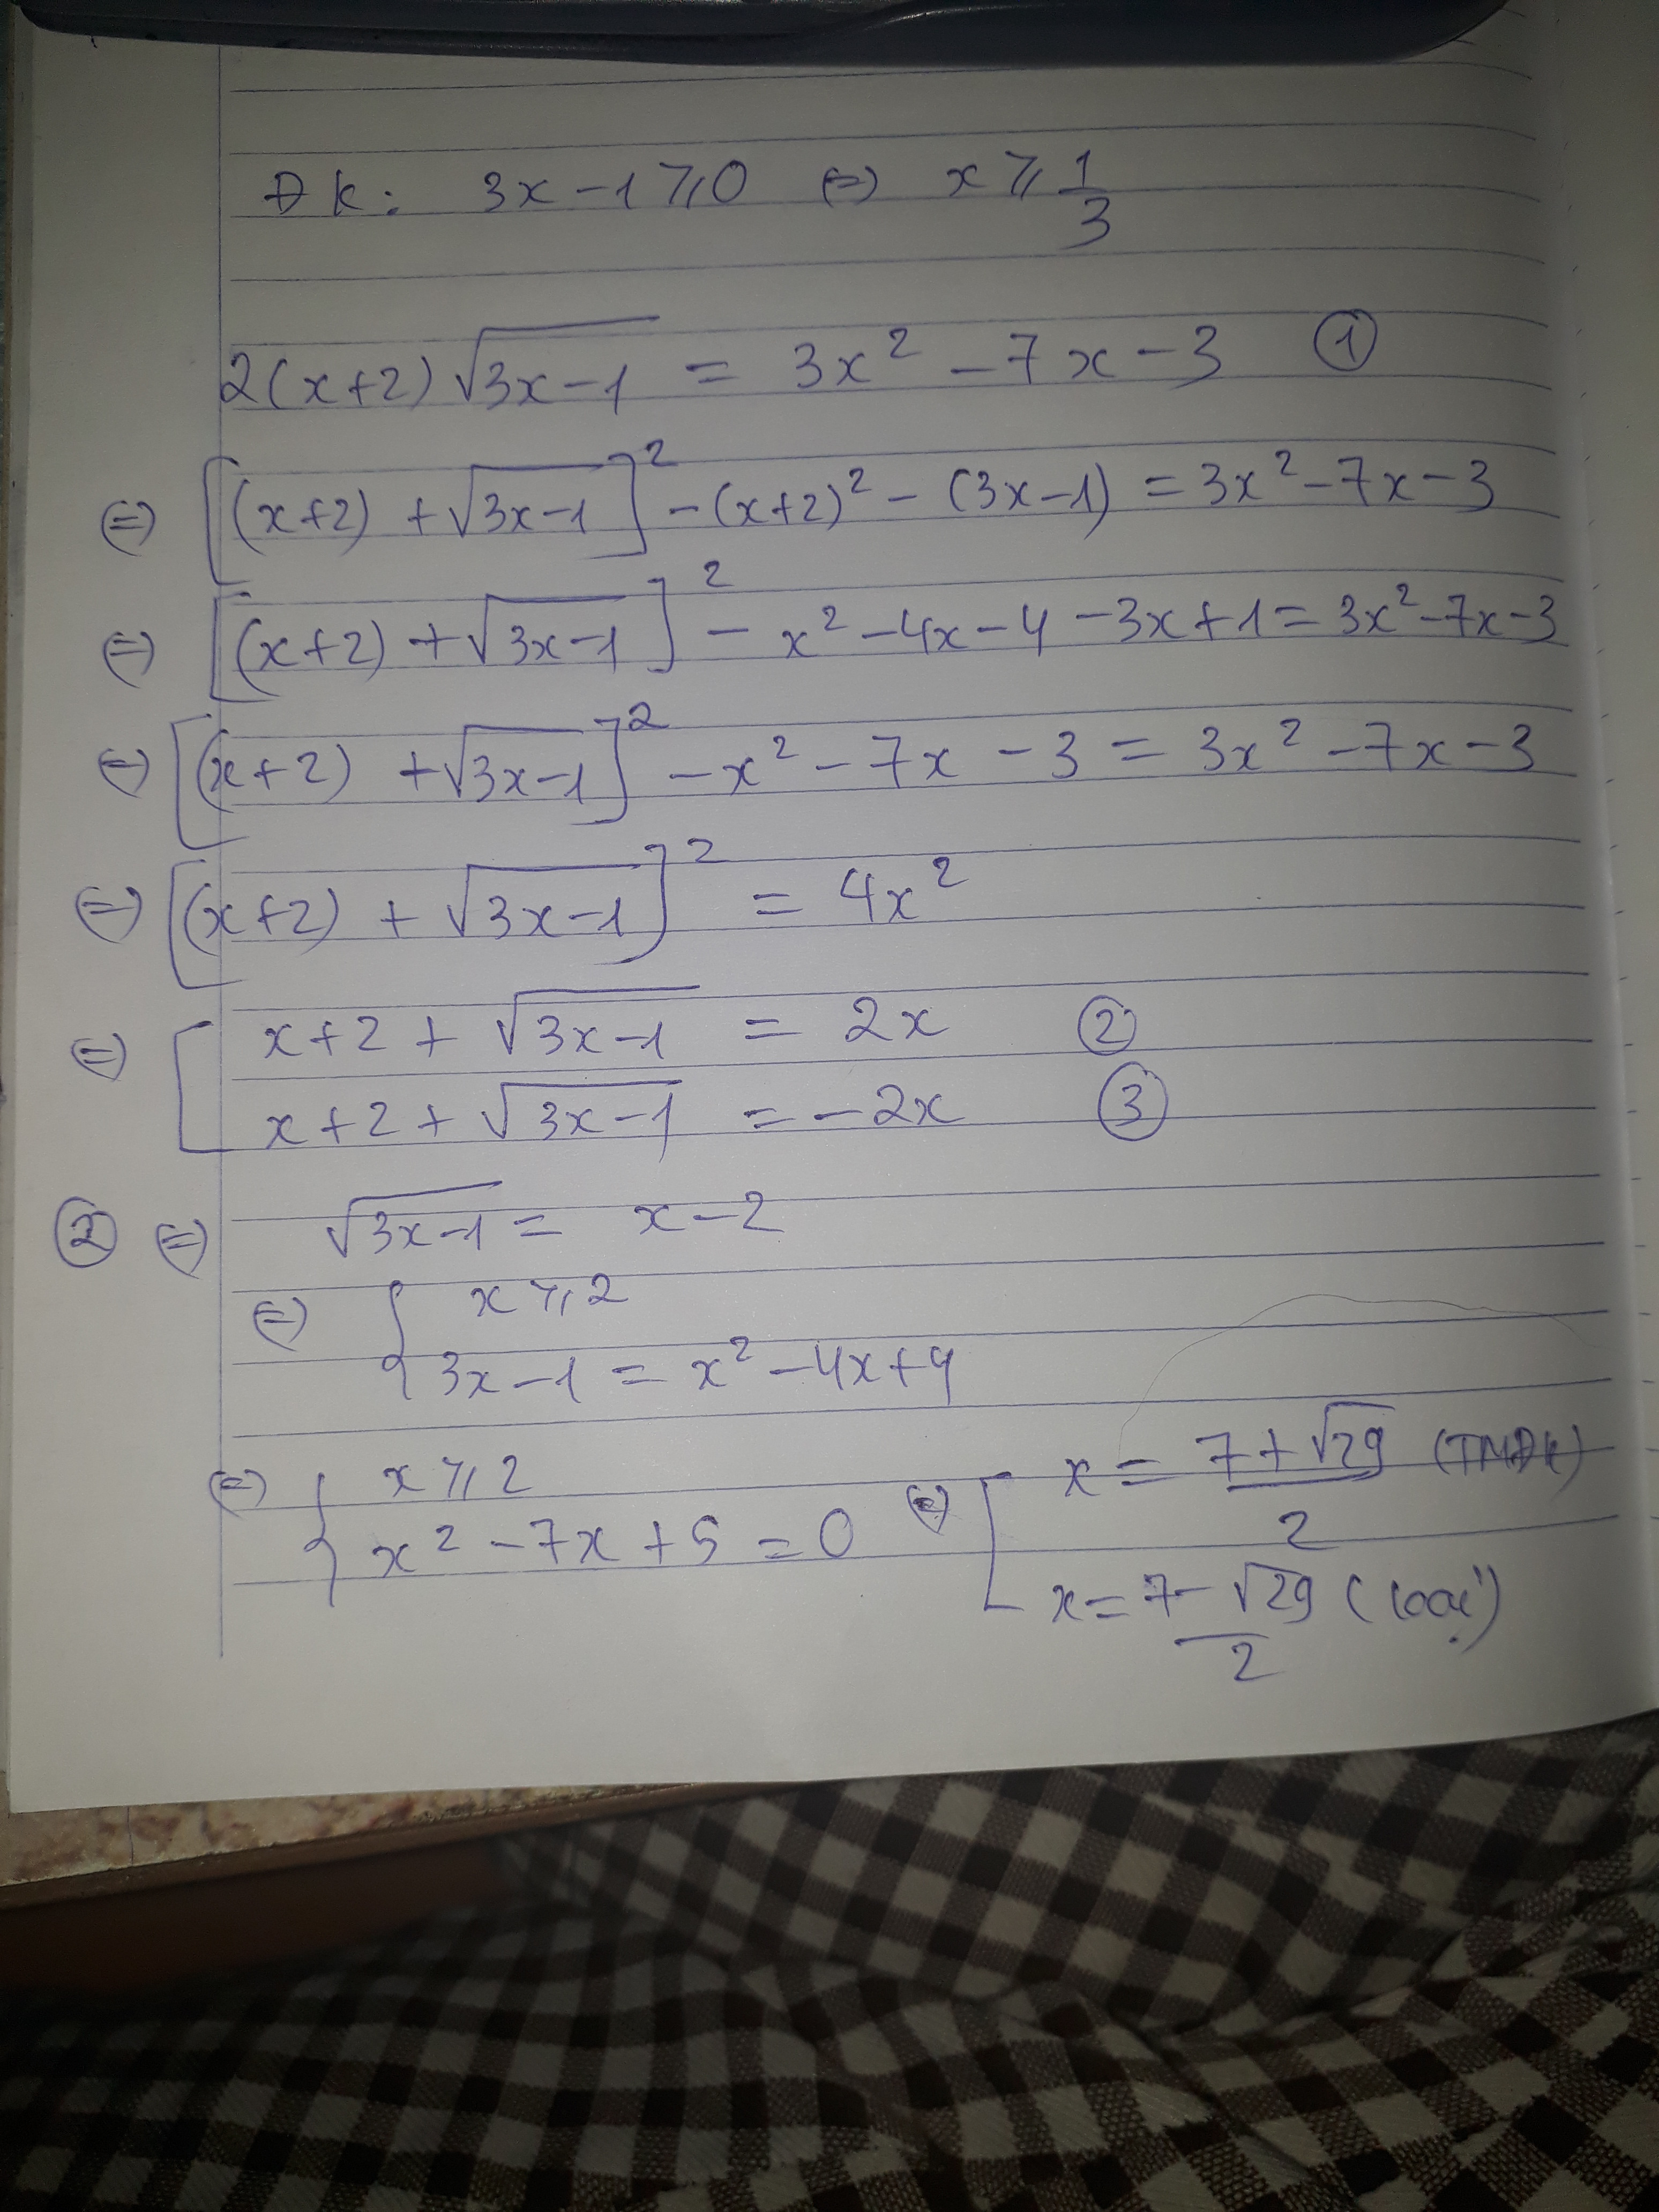 ĐK: 3x - 1 ⩾ 0 ⇔ x ⩾ 1/3
2(x+2)√(3x-1) = 3x² - 7x - 3 ①
⇔ [(x+2) + √(3x-1)]² - (x+2)² - (3x-1) = 3x² - 7x - 3
⇔ [(x+2) + √(3x-1)]² - x² - 4x - 4 - 3x + 1 = 3x² - 7x - 3
⇔ [(x+2) + √(3x-1)]² - x² - 7x - 3 = 3x² - 7x - 3
⇔ [(x+2) + √(3x-1)]² = 4x²
⇔ [ x+2 + √(3x-1) = 2x ②
x+2 + √(3x-1) = -2x ③
② ⇔ √(3x-1) = x - 2
⇔ { x ⩾ 2
3x - 1 = x² - 4x + 4
⇔ { x ⩾ 2
x² - 7x + 5 = 0 ⇔ [ x = (7 + √29)/2 (TMĐK)
x = (7 - √29)/2 (loại)